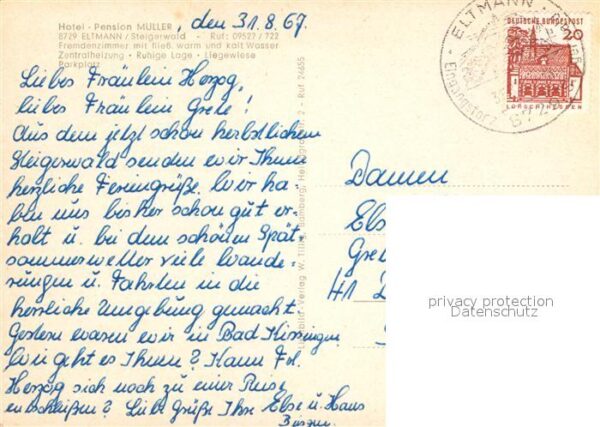 Hotel - Pension MÜLLER
8729 ELTMANN / Steigerwald - Ruf: 09527 / 722
Fremdenzimmer mit fließ. warm und kalt Wasser
Zentralheizung - Ruhige Lage - Liegewiese
Parkplatz
, den 31.8.67.
Liebes Fräulein Herzog,
liebes Fräulein Grete!
Aus dem jetzt schon herbstlichen
Steigerwald senden wir Ihnen
herzliche Feriengrüße. Wir ha-
ben uns bisher schon gut er-
holt u. bei dem schönen Spät-
sommerwetter viele Wande-
rungen u. Fahrten in die
herrliche Umgebung gemacht.
Gestern waren wir in Bad Kissingen
Wie geht es Ihnen? Kann Frl.
Herzog sich noch zu einer Reise
entschließen? Liebe Grüße Ihre Else u. Haus
Verlag W. Bamberg, 2 - Ruf 24655
ELTMANN
872
DEUTSCHE BUNDESPOST
20
LORSCH/HESSEN
Damen
Else
Gre
41 D
privacy protection
Datenschutz